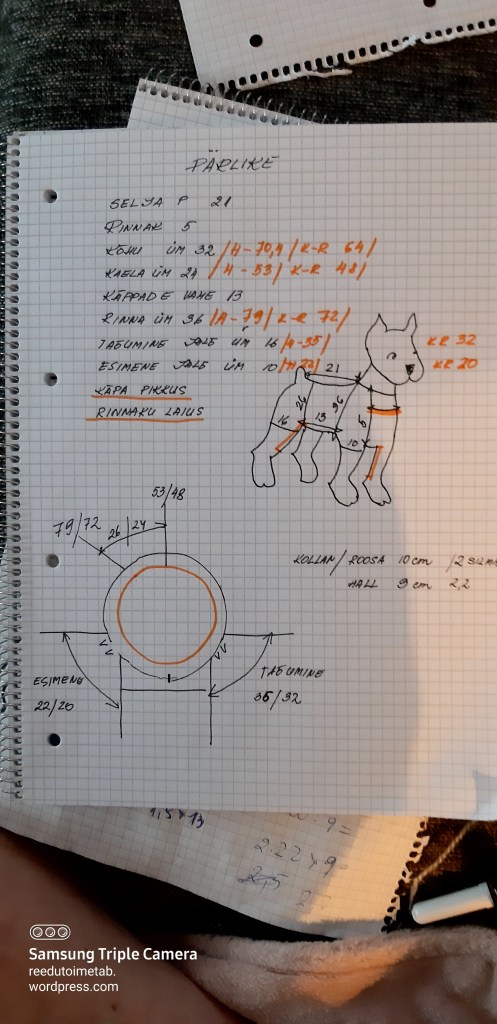 PÄRLIKE
SELJA P 21
RINNAK 5
KÕHU ÜM 32 /H-70,4/ K-R 64/
KAELA ÜM 24 /H-53/ K-R 48/
KÄPPADE VAHE 13
RINNA ÜM 36 /H-79/ K-R 72/
TAGUMINE JALG ÜM 16 /H-35/ KR 32
ESIMENE JALG ÜM 10 /H 22/ KR 20
KÄPA PIKKUS
RINNAKU LAIUS
21
24
36
16
13
10
5
53/48
79/72
26/24
KOLLAN/ROOSA 10 cm /2
HALL 9 cm 2,2
ESIMENE
22/20
TAGUMINE
35/32
1,5 × 13
2.22 × 9
Samsung Triple Camera
reedutoimetab.
wordpress.com